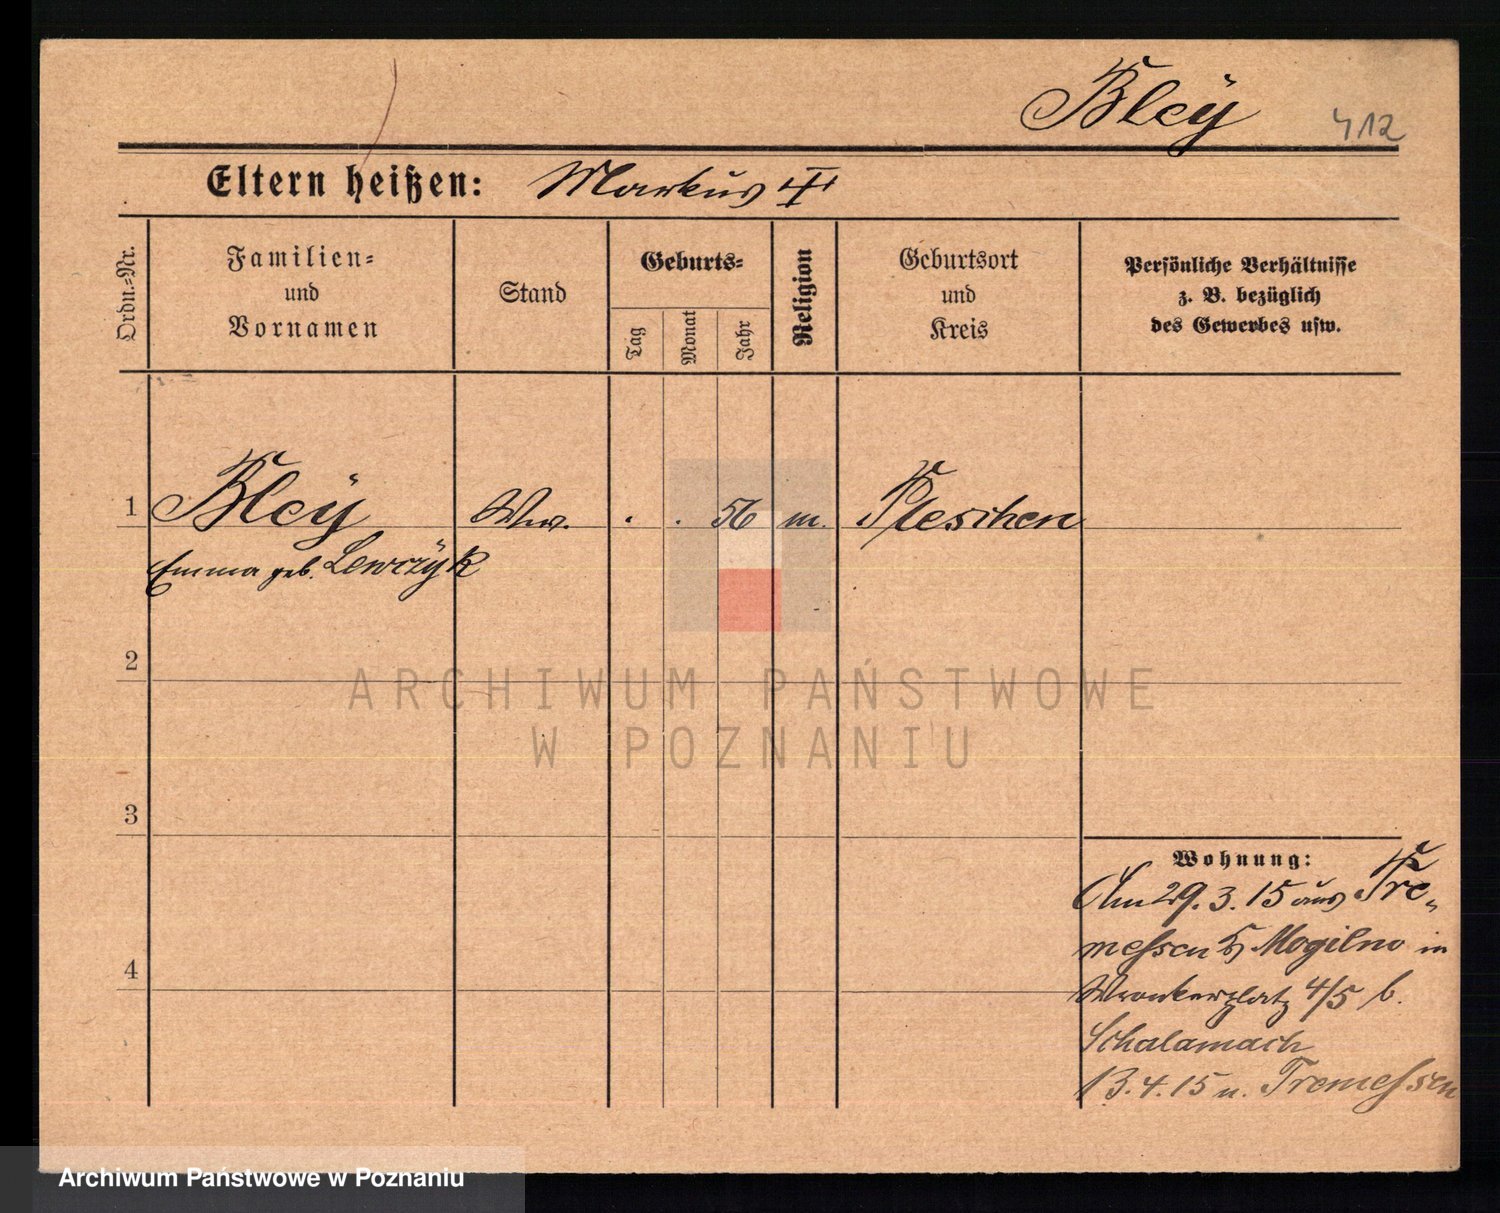 Bleÿ 412
Eltern heißen: Markus
Ordn.-Nr.
Familien-
und
Vornamen
Stand
Geburts-
Tag
Monat
Jahr
Religion
Geburtsort
und
Kreis
Persönliche Verhältnisse
z. B. bezüglich
des Gewerbes usw.
1 Bleÿ Ww. . . 56 m. Pleschen
Emma geb. Lewczÿk
2
ARCHIWUM PAŃSTWOWE
W POZNANIU
3
Wohnung:
Am 29. 3. 15 aus Tre-
messen Mogilno in
4
Wronkerplatz 4/5 b.
Schalamach
13. 4. 15 n. Tremessen
Archiwum Państwowe w Poznaniu